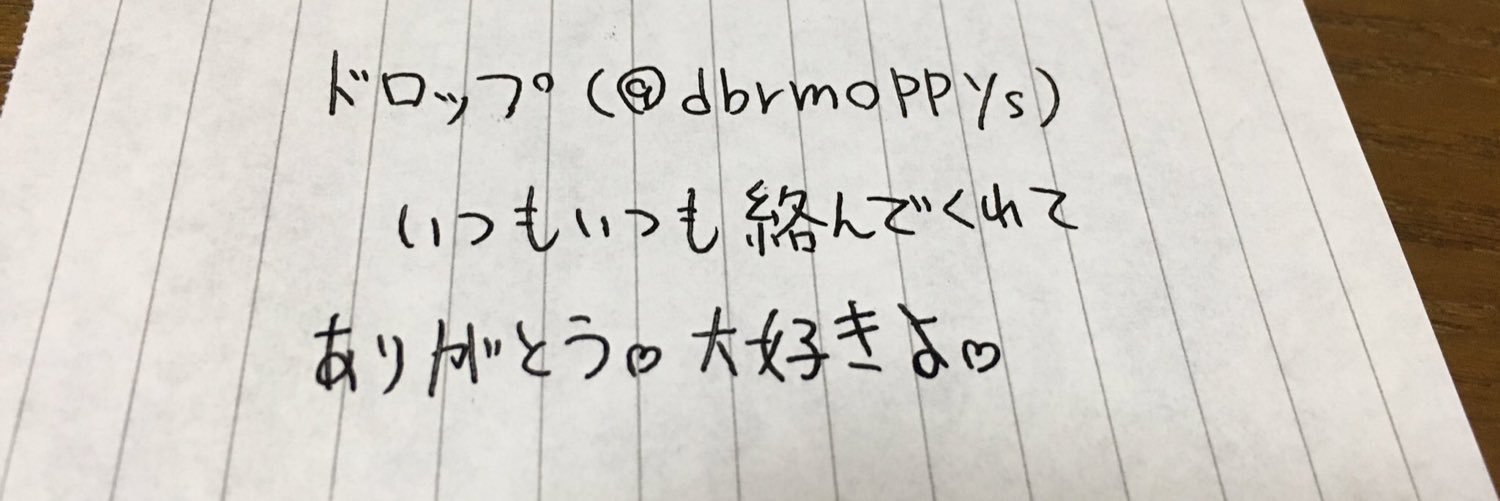 ドロップ(@dbrmoppys)
いつもいつも絡んでくれて
ありがとう♡大好きよ♡